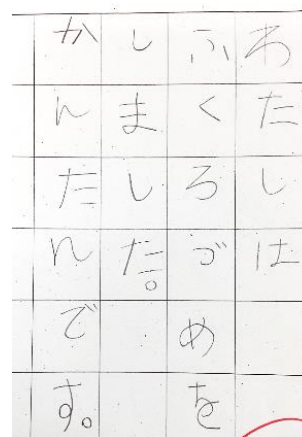 わたしは
ふくろづめを
しました。
かんたんです。